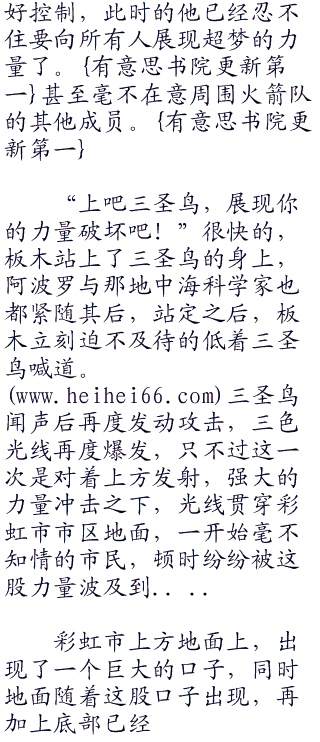 好控制，此时的他已经忍不
住要向所有人展现超梦的力
量了。{有意思书院更新第
一}甚至毫不在意周围火箭队
的其他成员。{有意思书院更
新第一}
“上吧三圣鸟，展现你
的力量破坏吧！”很快的，
板木站上了三圣鸟的身上，
阿波罗与那地中海科学家也
都紧随其后，站定之后，板
木立刻迫不及待的低着三圣
鸟喊道。
(www.heihei66.com)三圣鸟
闻声后再度发动攻击，三色
光线再度爆发，只不过这一
次是对着上方发射，强大的
力量冲击之下，光线贯穿彩
虹市市区地面，一开始毫不
知情的市民，顿时纷纷被这
股力量波及到．．．．
彩虹市上方地面上，出
现了一个巨大的口子，同时
地面随着这股口子出现，再
加上底部已经